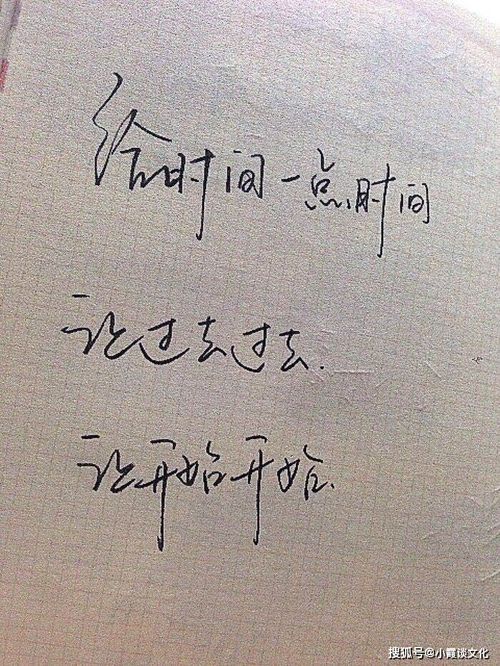 给时间一点时间
让过去过去.
让开始开始.
搜狐号@小霞谈文化